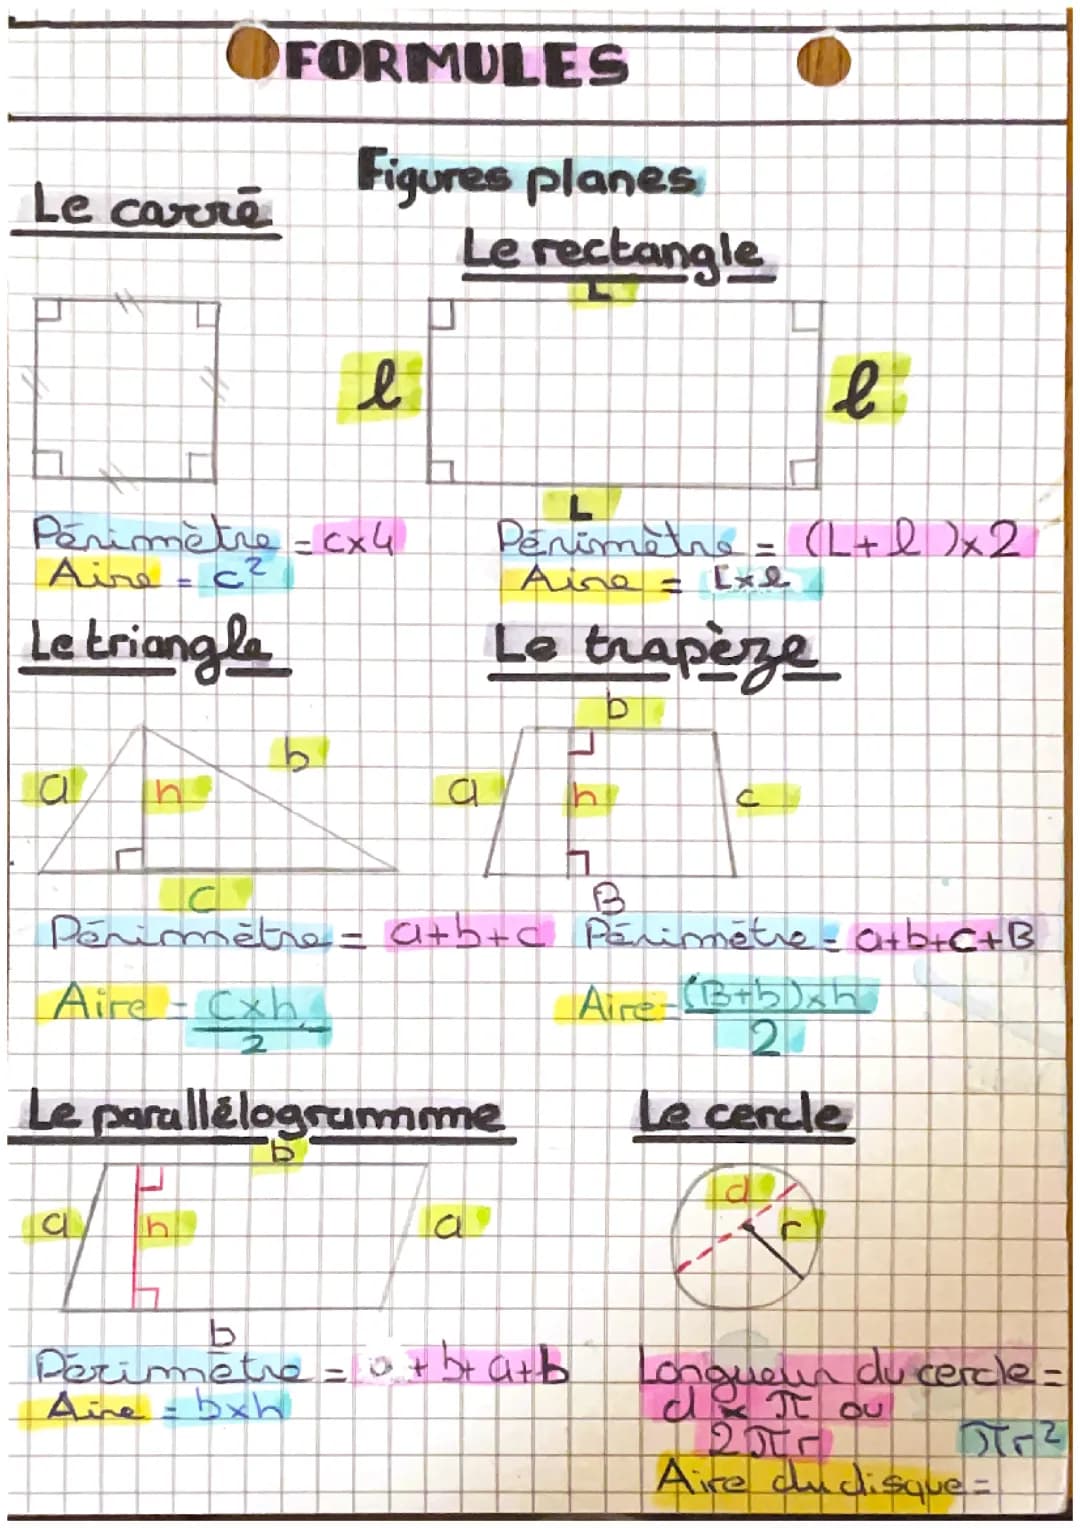 FORMULES
Figures planes
Le carré
Le rectangle
L
l
l
L
Périmètre = c×4
Aire = c²
Périmètre = (L+l)×2
Aire = L×l
Le triangle
Le trapèze
a
h
b
c
b
a
h
c
B
Périmètre = a+b+c
Aire = c×h
2
Périmètre = a+b+c+B
Aire = (B+b)×h
2
Le parallélogramme
b
a
h
a
b
Périmètre = a+b+a+b
Aire = b×h
Le cercle
d
r
Longueur du cercle =
d × π ou
2πr
πr²
Aire du disque =